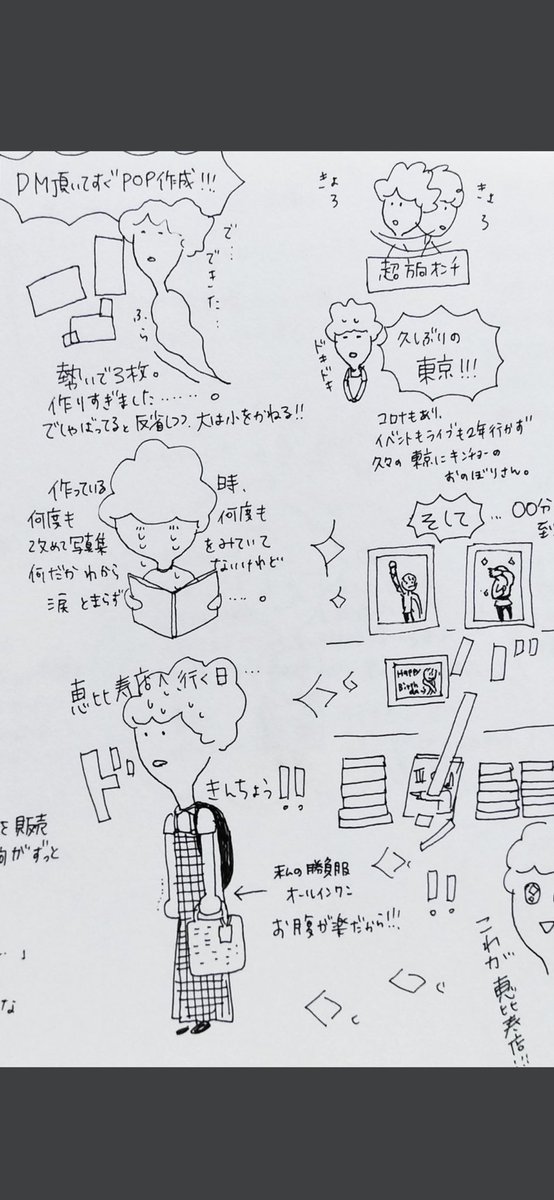 DM頂いてすぐPOP作成!!!
で…
できた…
ふら
勢いで3枚。
作りすぎました……。
でしゃばってると反省しつつ、大は小をかねる!!
作っている時、
何度も何度も
改めて写真集をみていて
何だかわからないけれど
涙とまらず…。
恵比寿店へ行く日…
ド
きんちょう!!
私の勝負服
オールインワン
お腹が楽だから!!!
を販売
向がずっと
な
きょろ
きょろ
超方向オンチ
ドキドキ
久しぶりの
東京!!!
コロナもあり、
イベントもライブも2年行かず
久々の東京にキンチョーの
おのぼりさん。
そして…〇〇分
到
Happy
Birth
!!
!!
これが恵比寿店!!!